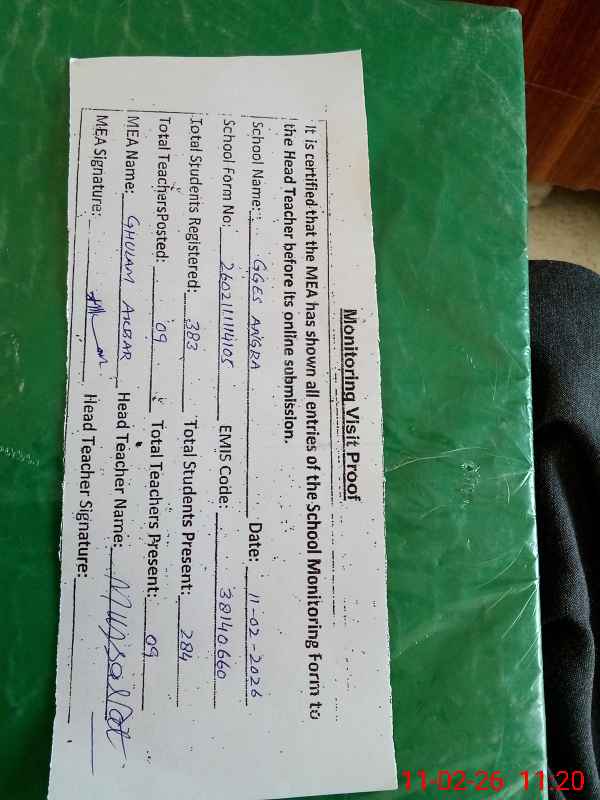 Monitoring Visit Proof
It is certified that the MEA has shown all entries of the School Monitoring Form to
the Head Teacher before its online submission.
School Name: GGES ANGRA Date: 11-02-2026
School Form No: 2602111114105 EMIS Code: 38140660
Total Students Registered: 383 Total Students Present: 284
Total TeachersPosted: 09 Total Teachers Present: 09
MEA Name: GHULAM AKBAR Head Teacher Name: Mussarat
MEA Signature: Head Teacher Signature:
11-02-26 11:20